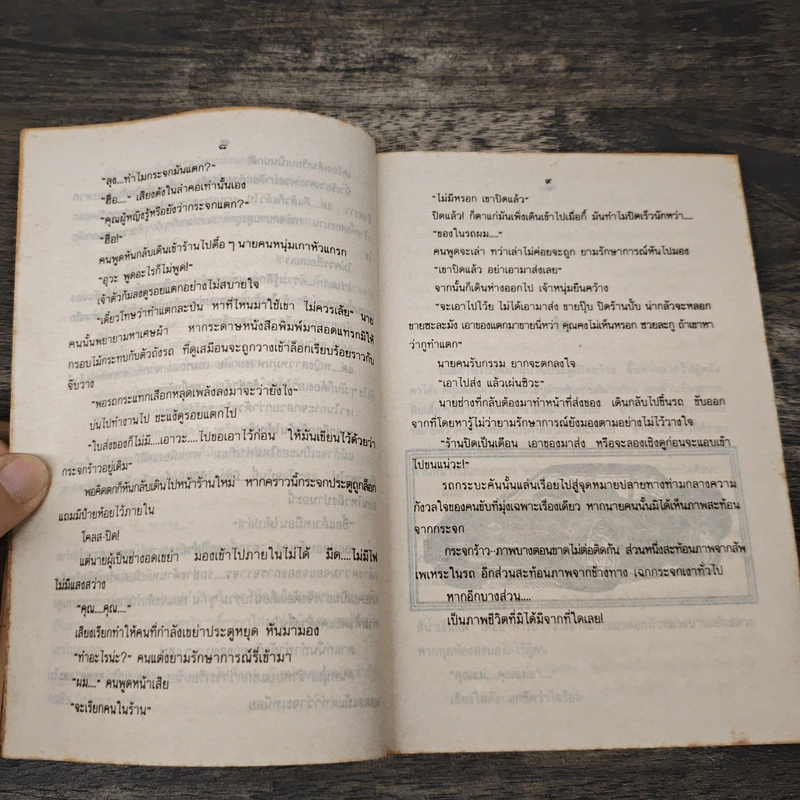 ๘
"ลุง...ทำไมกระจกมันแตก?"
"ฮือ...." เสียงดังในลำคอเท่านั้นเอง
"คุณผู้หญิงรู้หรือยังว่ากระจกแตก?"
"ฮื่อ!"
คนพูดหันกลับเดินเข้าร้านไปดื้อ ๆ นายคนหนุ่มเกาหัวแกรก
"อุวะ พูดอะไรก็ไม่พูด!"
เจ้าตัวก้มลงดูรอยแตกอย่างไม่สบายใจ
"เดี๋ยวโทษว่าทำแตกละป่น หาที่ไหนมาใช้เขา ไม่ควรเล้ย" นาย
คนนั้นพยายามหาเศษผ้า หากระดาษหนังสือพิมพ์มาสอดแทรกมิให้
กรอบไม้กระทบกับตัวถังรถ ที่ดูเสมือนจะถูกวางเข้าล็อกเรียบร้อยราวกับ
จับวาง
"พอรถกระแทกเสือกหลุดเพล้งลงมาจะว่ายังไง"
บ่นไปทำงานไป ชะแง้ดูรอยแตกไป
"ใบส่งของก็ไม่มี....เอาวะ....ไปขอเอาไว้ก่อน ให้มันเขียนไว้ด้วยว่า
กระจกร้าวอยู่เดิม"
พอคิดตกก็หันกลับเดินไปหน้าร้านใหม่ หากคราวนี้กระจกประตูถูกล็อก
แถมมีป้ายห้อยไว้ภายใน
โคลส-ปิด!
แต่นายผู้เป็นช่างอดเขย่า มองเข้าไปภายในไม่ได้ มืด....ไม่มีไฟ
ไม่มีแสงสว่าง
"คุณ....คุณ...."
เสียงเรียกทำให้คนที่กำลังเขย่าประตูหยุด หันมามอง
"ทำอะไรน่ะ?" คนแต่งยามรักษาการณ์รี่เข้ามา
"ผม...." คนพูดหน้าเสีย
"จะเรียกคนในร้าน"
๙
"ไม่มีหรอก เขาปิดแล้ว"
ปิดแล้ว! ก็ตาแก่มันเพิ่งเดินเข้าไปเมื่อกี้ มันทำไมปิดเร็วนักหว่า....
"ของในรถผม...."
คนพูดจะเล่า ทว่าเล่าไม่ค่อยจะถูก ยามรักษาการณ์หันไปมอง
"เขาปิดแล้ว อย่าเอามาส่งเลย"
จากนั้นก็เดินห่างออกไป เจ้าหนุ่มยืนคว้าง
"จะเอาไปโว้ย ไม่ได้เอามาส่ง ขายปุ๊บ ปิดร้านปั๊บ น่ากลัวจะหลอก
ขายซะละมัง เอาของแตกมาขายนี่หว่า คุณคงไม่เห็นหรอก ซวยละกู ถ้าเขาหา
ว่ากูทำแตก"
นายคนรับกรรม ยากจะตกลงใจ
"เอาไปส่ง แล้วเผ่นซิวะ"
นายช่างที่กลับต้องมาทำหน้าที่ส่งของ เดินกลับไปขึ้นรถ ขับออก
จากที่โดยหารู้ไม่ว่ายามรักษาการณ์ยังมองตามอย่างไม่ไว้วางใจ
"ร้านปิดเป็นเดือน เอาของมาส่ง หรือจะลองเชิงดูก่อนจะแอบเข้า
ไปขนแน่วะ!"
รถกระบะคันนั้นแล่นเรื่อยไปสู่จุดหมายปลายทางท่ามกลางความ
กังวลใจของคนขับที่มุ่งเฉพาะเรื่องเดียว หากนายคนนั้นมิได้เห็นภาพสะท้อน
จากกระจก
กระจกร้าว-ภาพบางตอนขาดไม่ต่อติดกัน ส่วนหนึ่งสะท้อนภาพจากสัพ
เพเหระในรถ อีกส่วนสะท้อนภาพจากข้างทาง เฉกกระจกเงาทั่วไป
หากอีกบางส่วน....
เป็นภาพชีวิตที่มิได้มีจากที่ใดเลย!